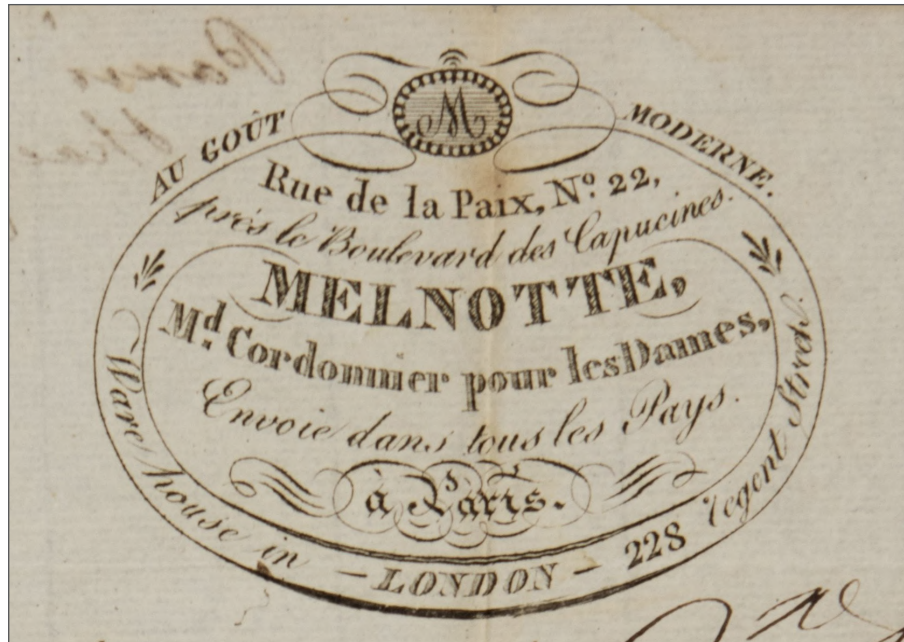 M
AU GOÛT MODERNE.
Rue de la Paix, Nº. 22,
près le Boulevard des Capucines.
MELNOTTE,
Md. Cordonnier pour les Dames,
Envoie dans tous les Pays.
à Paris.
Ware house in — LONDON — 228 regent Street.